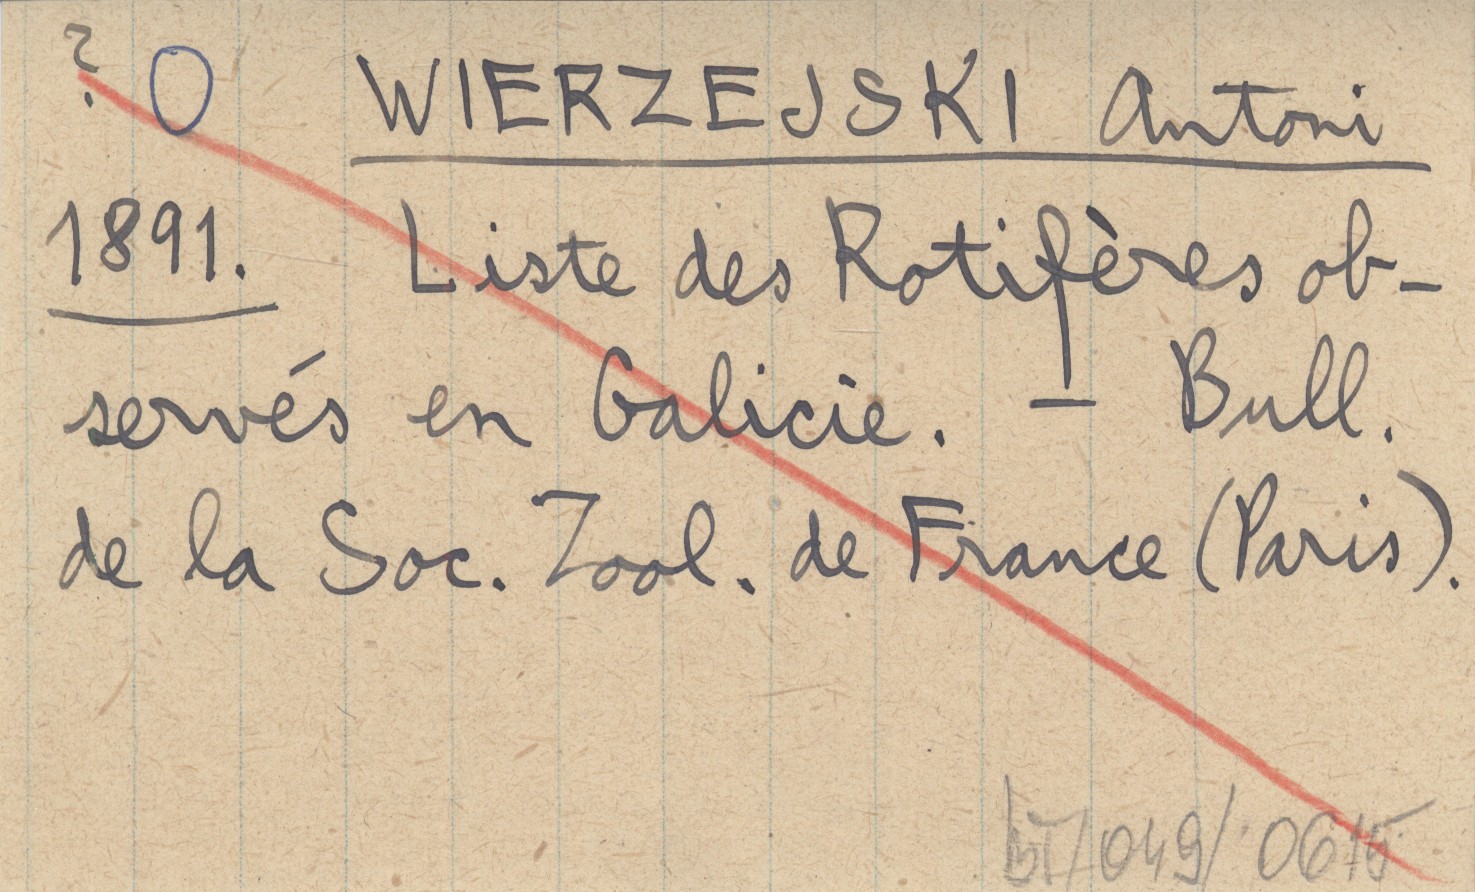 ? O WIERZEJSKI Antoni
1891. Liste des Rotifères ob-
servés en Galicie. — Bull.
de la Soc. Zool. de France (Paris).
/049/